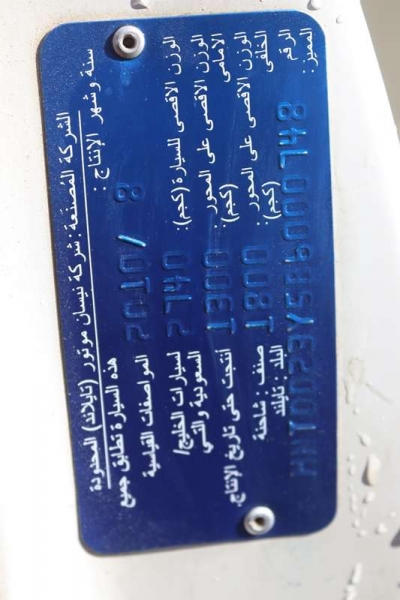 الشركة المصنعة : شركة نيسان موتور (تايلاند) المحدودة
سنة و شهر الإنتاج :
2010/ 8
هذه السيارة تطابق جميع
المواصفات القياسية
لسيارات الخليج/
السعودية والتي
أنتجت حتى تاريخ الإنتاج.
الوزن الأقصى للسيارة (كجم):
2740
الوزن الأقصى على المحور
الأمامي (كجم):
1300
الوزن الأقصى على المحور
الخلفي (كجم):
1800
صنف : شاحنة
البلد : تايلند
الرقم
المميز: